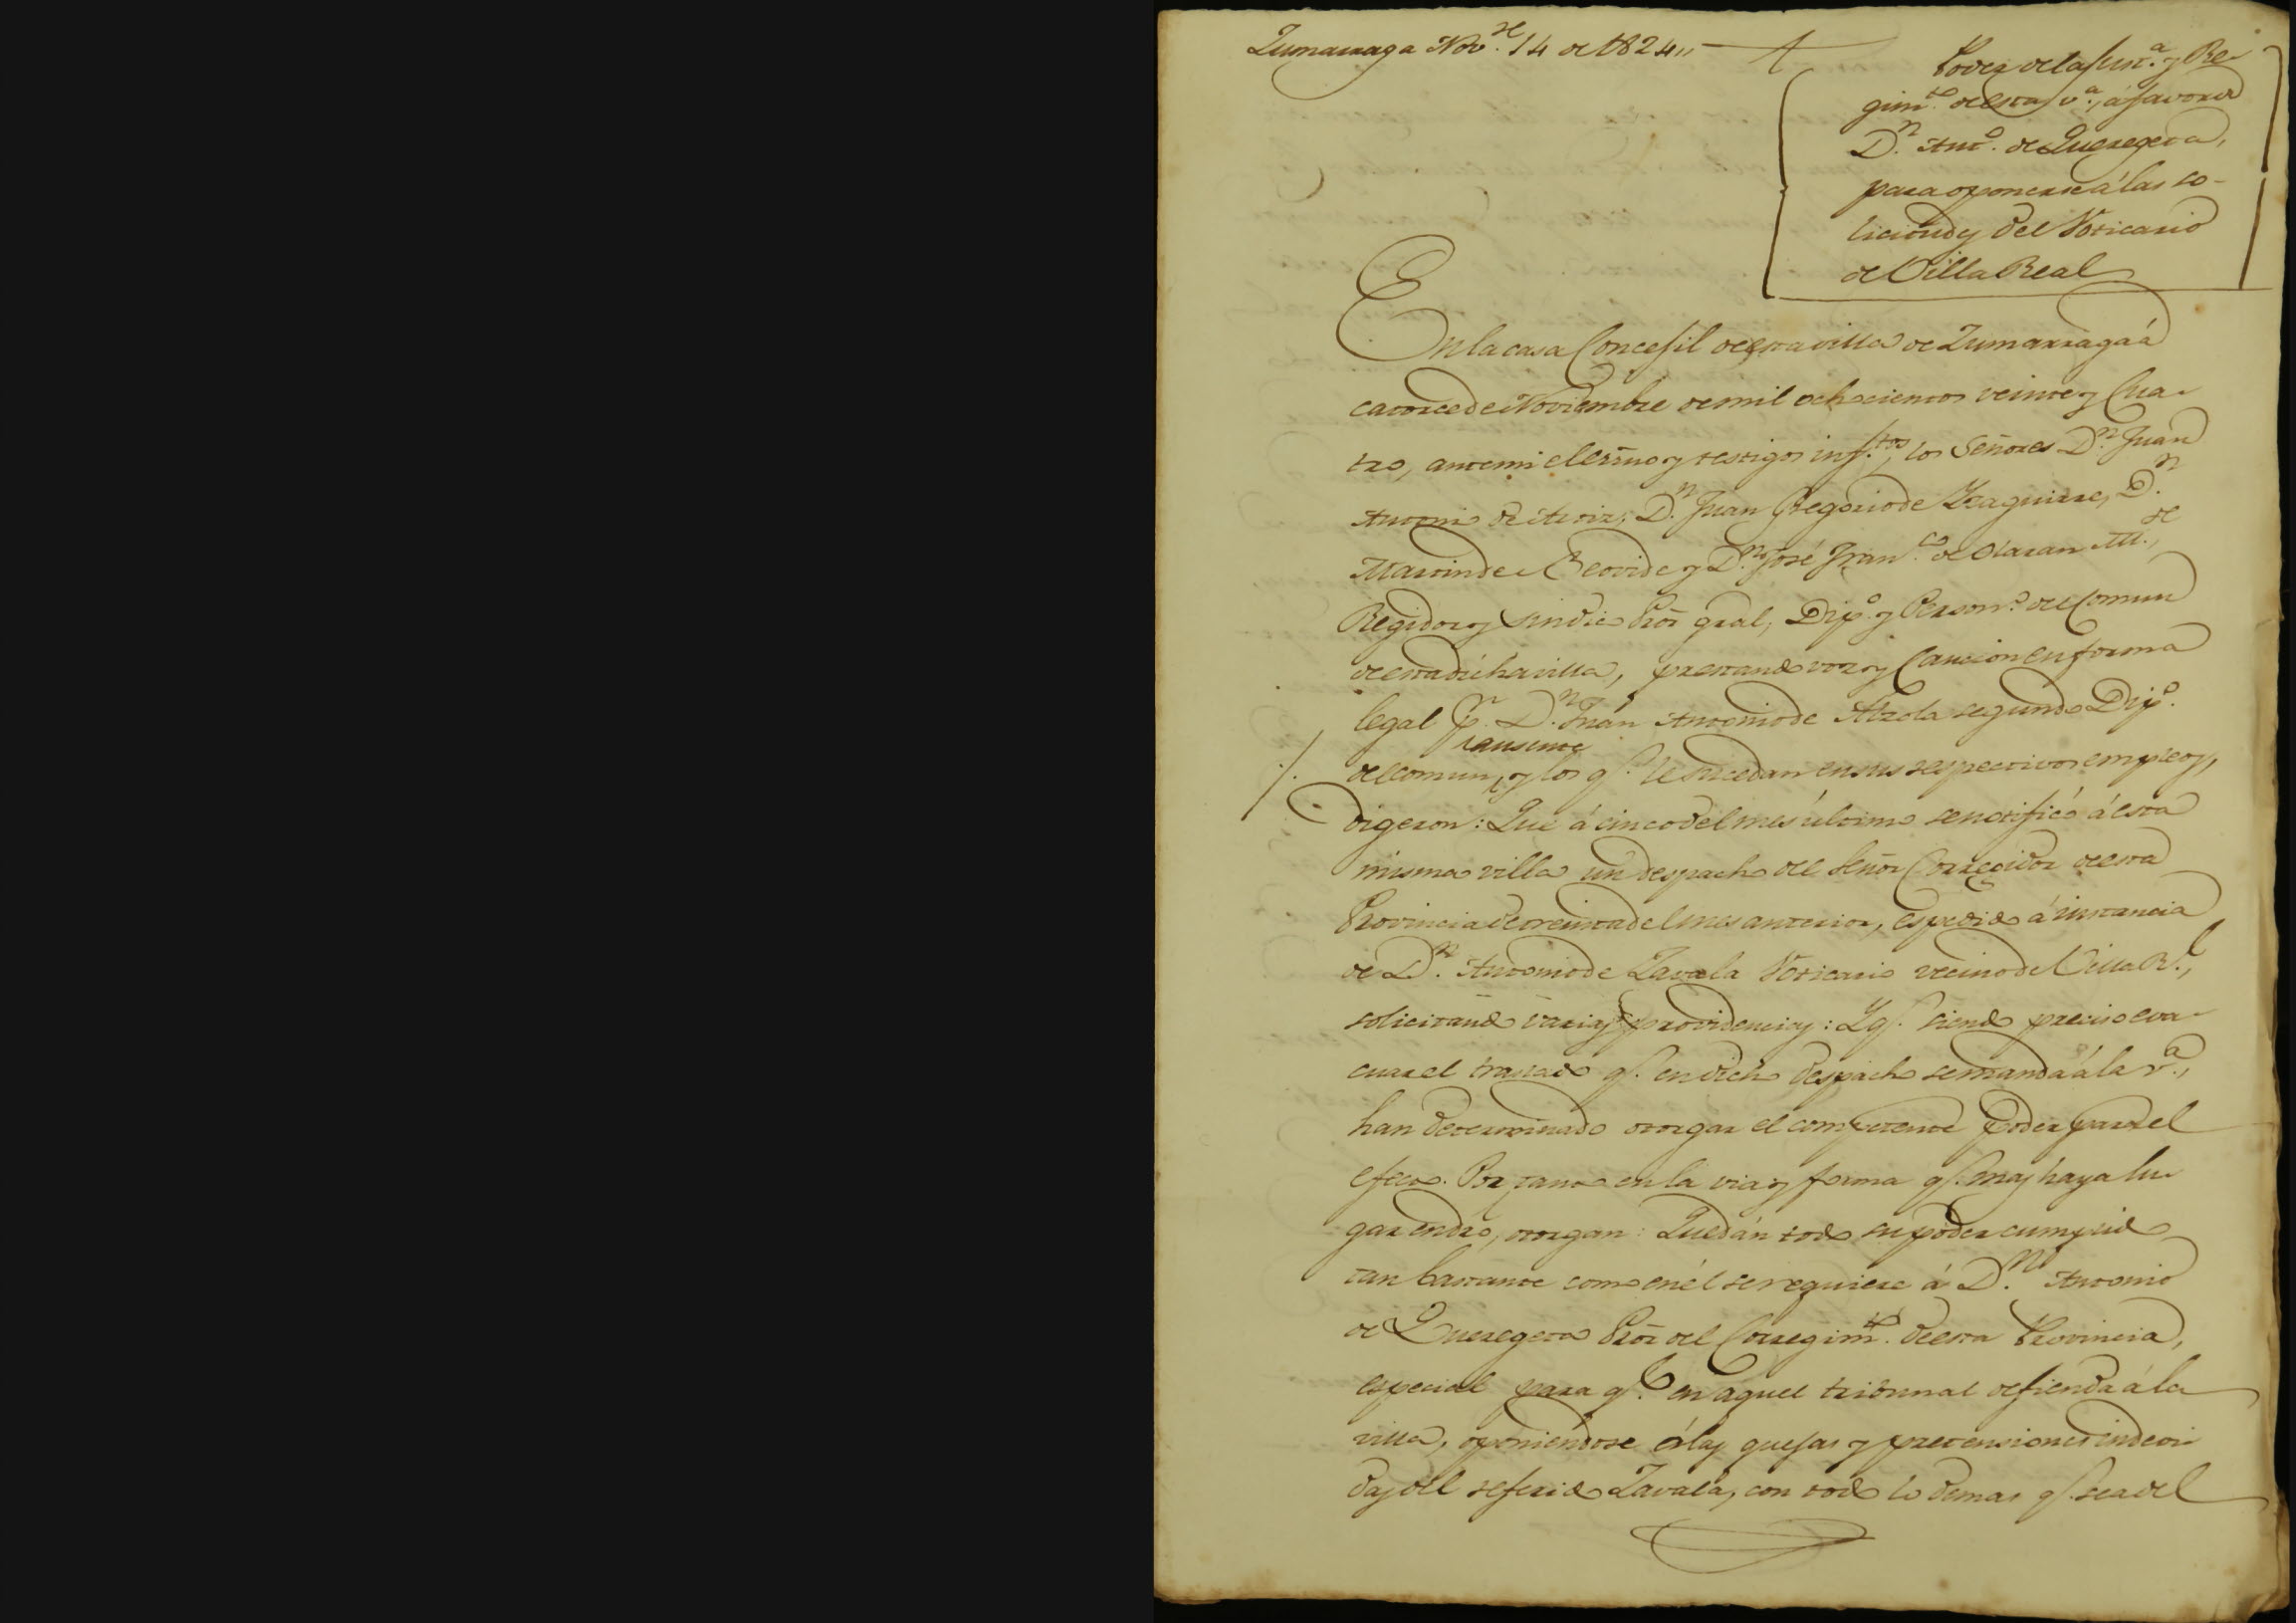 Zumarraga Nov.re 14 de 1824,,
Poder de la Just.a y Re-
gim.to de esta v.a, á favor de
D.n Ant.o de Queregeta,
para oponerse á las so-
licitudes del Boticario
de Villa Real
En la casa Concejil de esta villa de Zumarraga á
catorce de Noviembre de mil ochocientos veinte y Cua-
tro, ante mi el essno y testigos inf.tos, los Señores D.n Juan
Antonio de Alviz, D.n Juan Gregorio de Yzaguirre, D.n
Martin de Beovide y D.n José Fran.co de Olaran Alc.de,
Regidor y sindico Pror gral, Dip.o y Person.o del Comun
de esta dicha villa, prestando voz y Caucion en forma
legal p.r D.n Juan Antonio de Alzola segundo Dip.o
ausente
del comun, y los q.e le sucedan en sus respectivos empleos,
digeron: Que á cinco del mes último se notificó á esta
misma villa un despacho del Señor Corregidor de esta
Provincia de treinta del mes anterior, espedido á instancia
de D.n Antonio de Zavala Boticario vecino de Villa R.l,
solicitando varias providencias: Y q.e siendo preciso eva-
cuar el traslado q.e en dicho despacho se manda á la v.a,
han determinado otorgar el competente poder para el
efecto. Por tanto en la via y forma q.e mas haya lu-
gar en dro, otorgan: Que dán todo su poder cumplido
tan bastante como en él se requiere á D.n Antonio
de Queregeta Pror del Corregim.to de esta Provincia,
especial para q.e en aquel tribunal defienda á la
villa, oponiendose á las quejas y pretensiones indevi-
das del referido Zavala, con todo lo demas q.e sea del